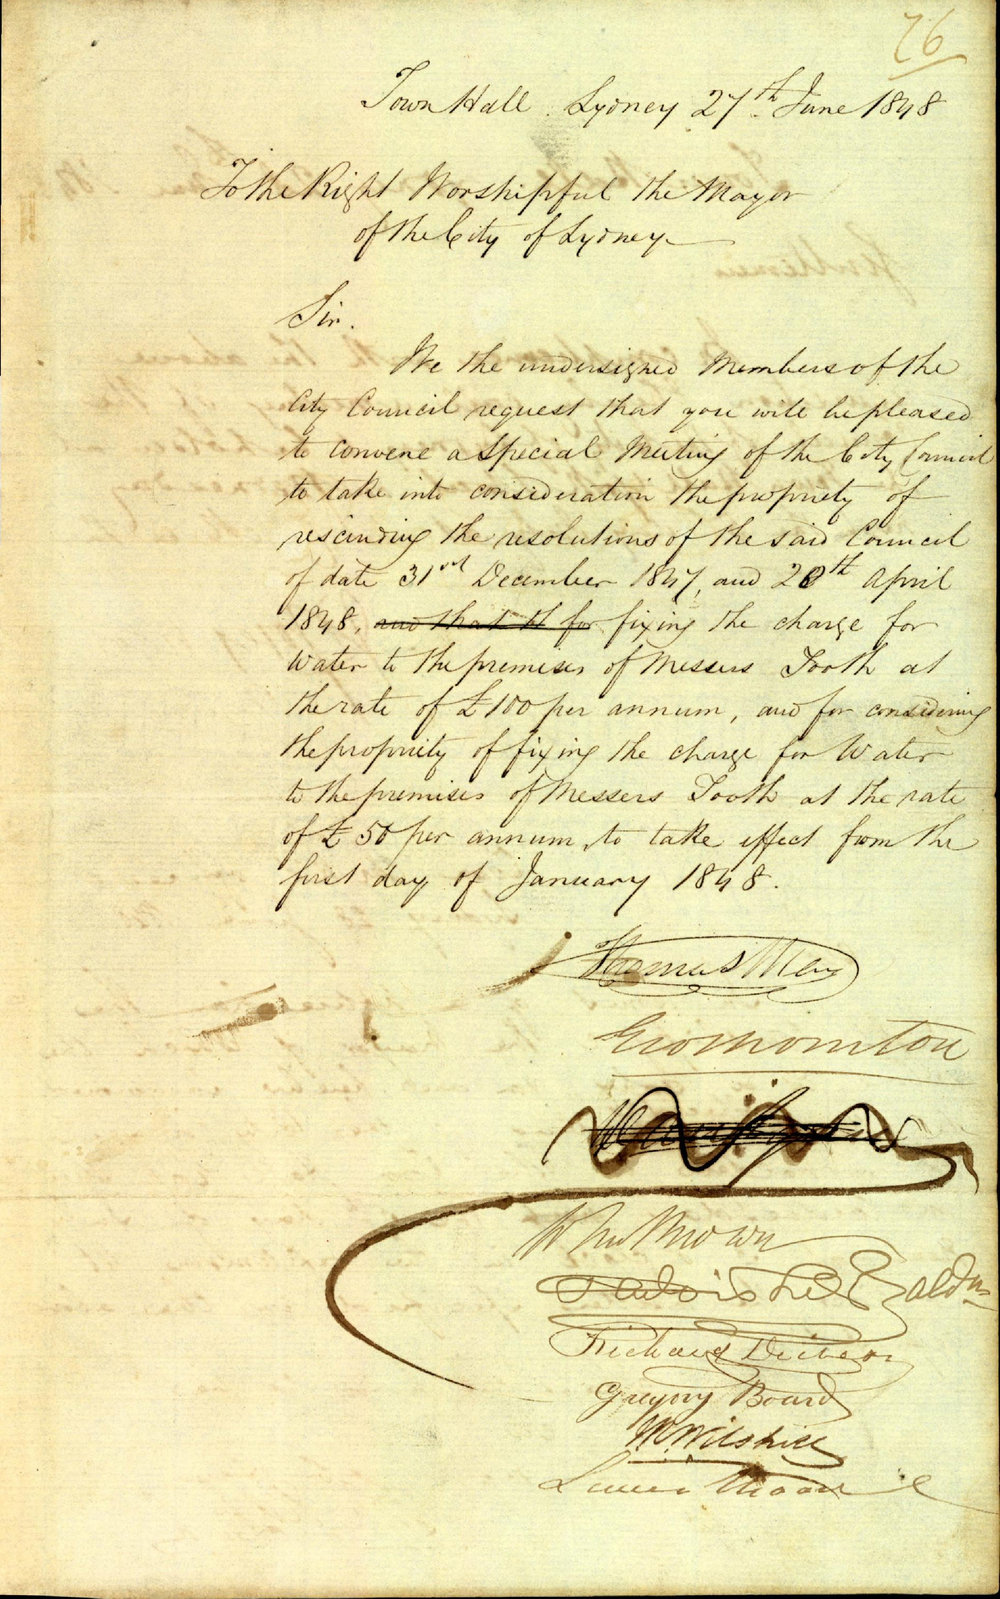 76
Town Hall Sydney 27th June 1848
To the Right Worshipful the Mayor
of the City of Sydney
Sir.
We the undersigned Members of the
City Council request that you will be pleased
to convene a Special Meeting of the City Council
to take into consideration the propriety of
rescinding the resolutions of the said Council
of date 31st December 1847, and 28th April
1848, and that th for fixing the charge for
Water to the premises of Messers Tooth at
the rate of £100 per annum, and for considering
the propriety of fixing the charge for Water
to the premises of Messers Tooth at the rate
of £50 per annum, to take effect from the
first day of January 1848.
Thomas May
Geo Thornton
Jno Brown
Baldwin
Richard Driver
Gregory Board
W. Wilshire